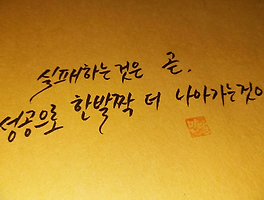 실패하는것은 곧,
성공으로 한발짝 더 나아가는것이